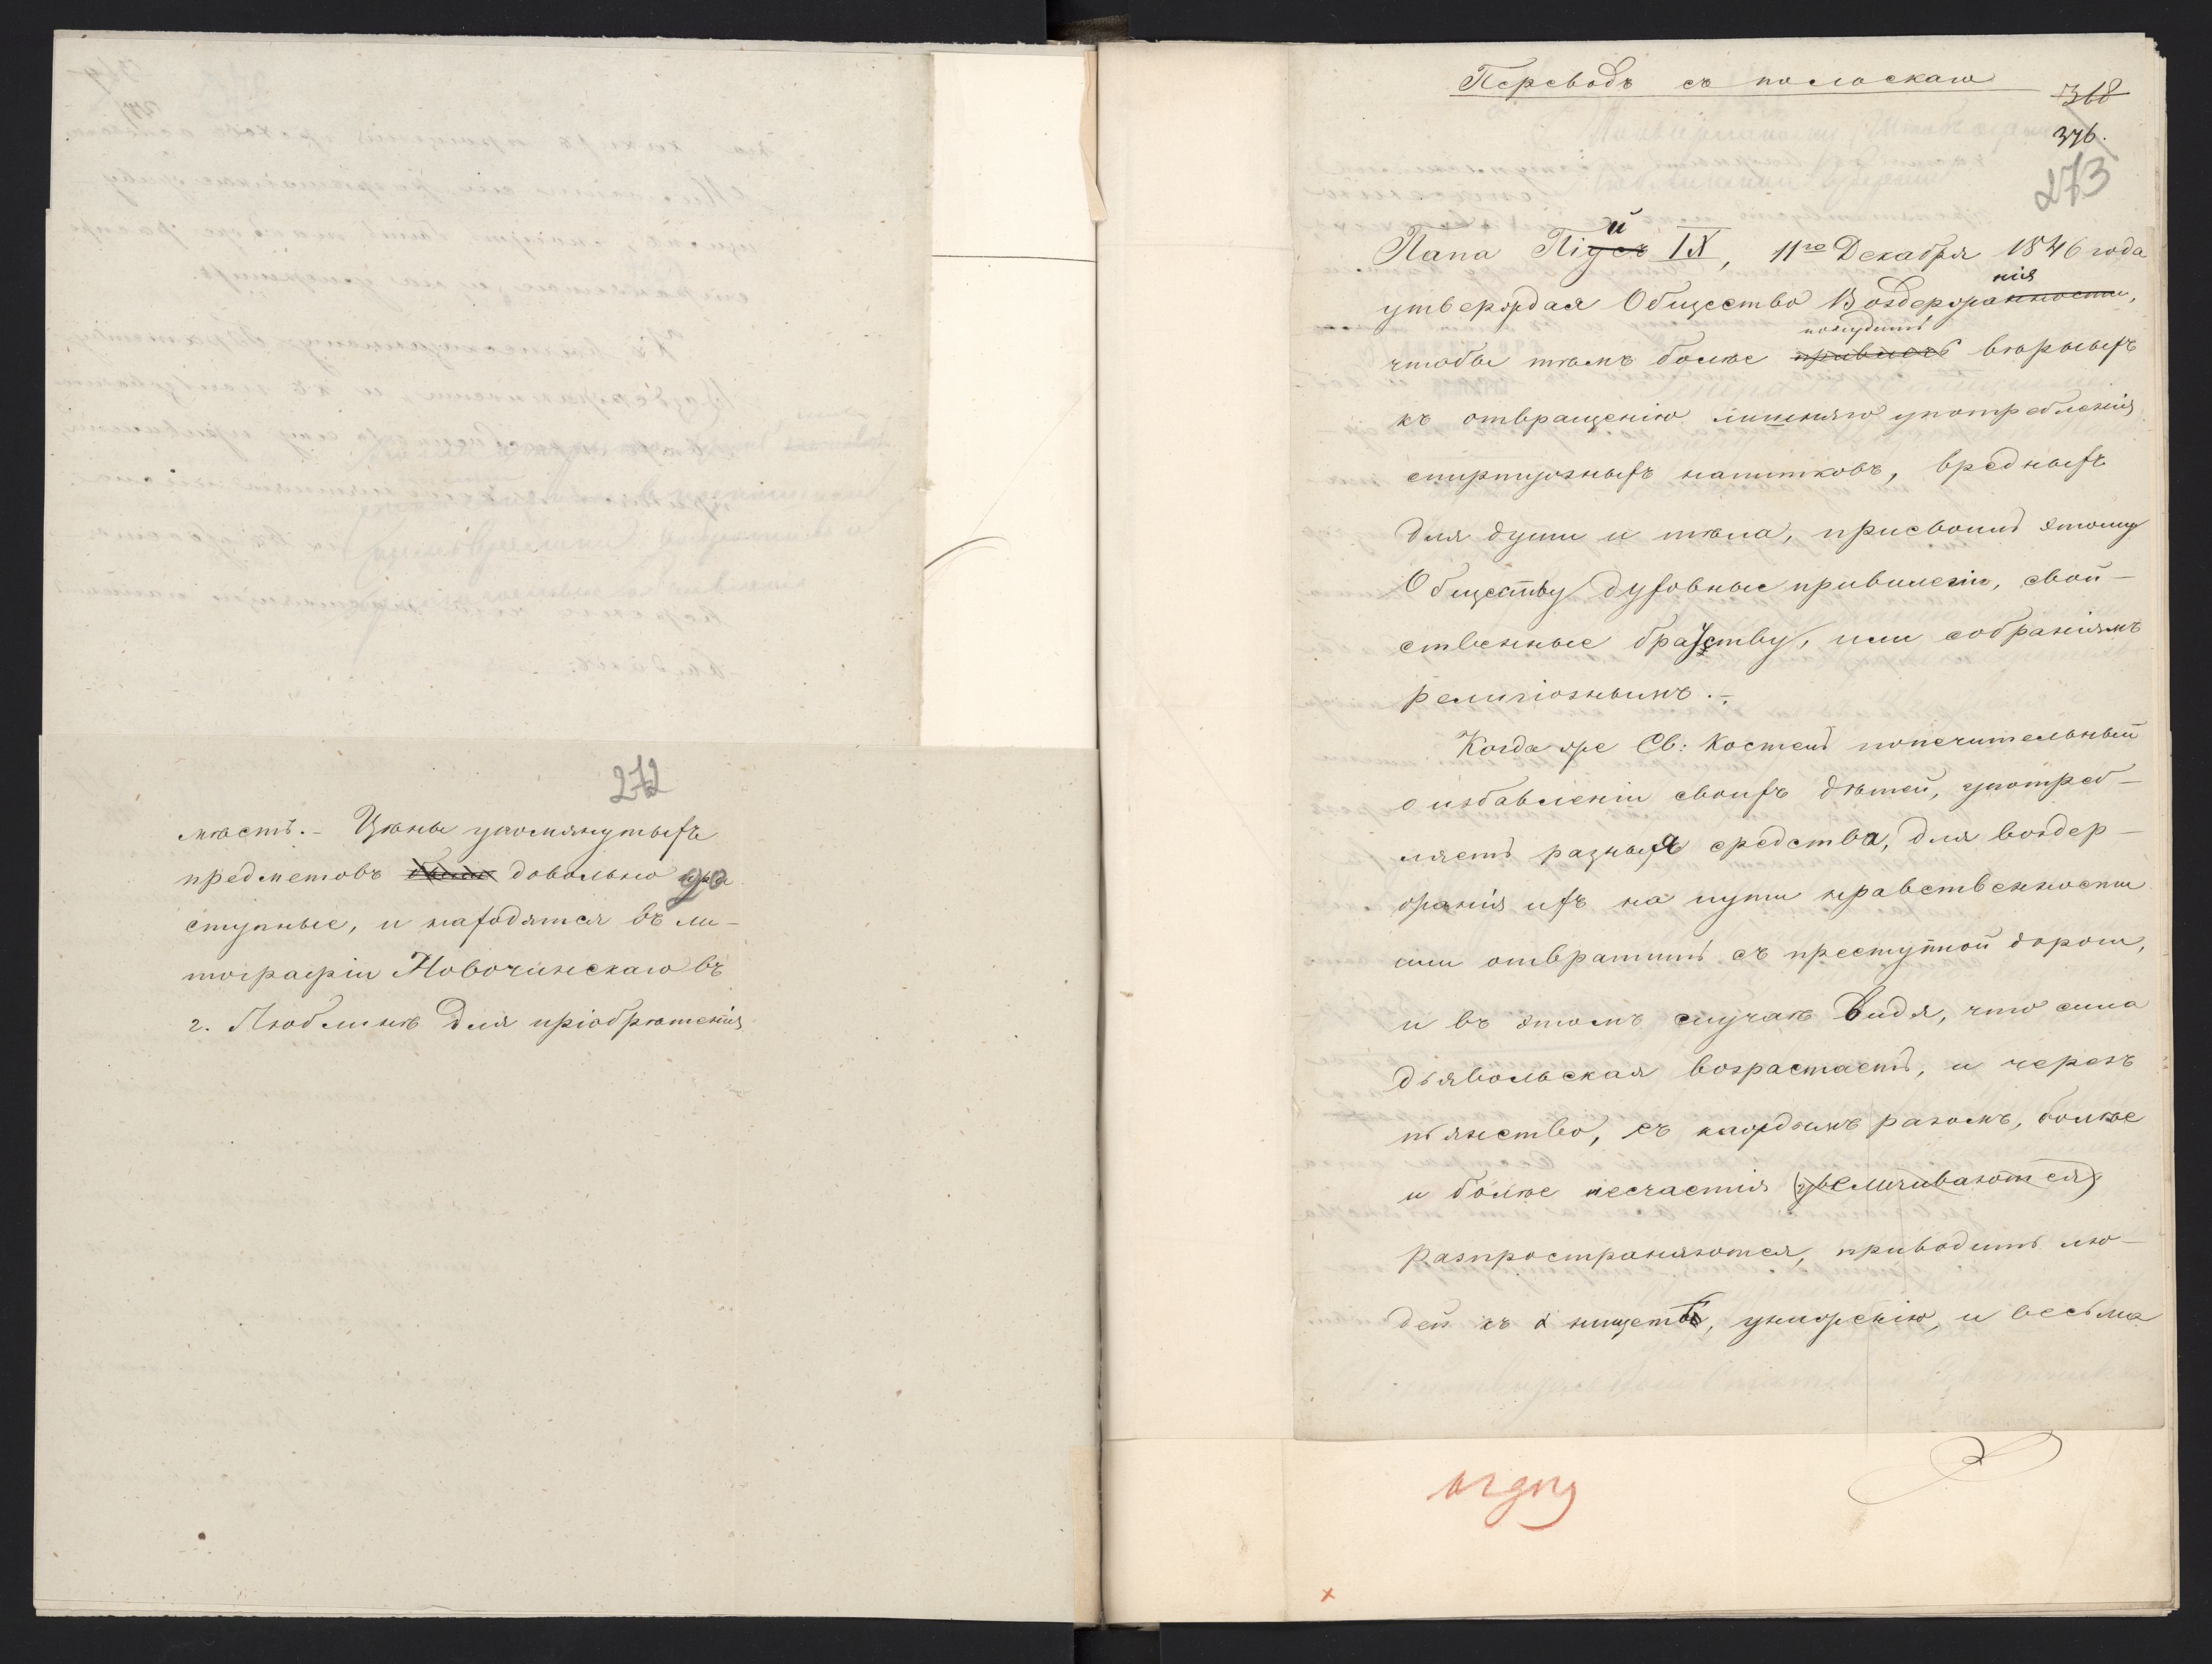 272
мѣсть. – Цѣны упомянутыхъ
предметовъ довольно до
ступные, и находятся въ ли-
тографіи Новочинскаго въ
г. Люблинѣ для пріобрѣтенія
Переводъ съ польскаго
368
376.
273
Папа Пій IX, 11го Декабря 1846 года
утверждая Общество Воздержанія,
чтобы тѣмъ болѣе понудить вѣрныхъ
къ отвращенію лишняго употребленія
спиртуозныхъ напитковъ, вредныхъ
для души и тѣла, присвоилъ этому
Обществу духовные привилегіи, свой-
ственные братству, или собраніямъ
религіознымъ. –
Когда же Св: Костелъ попечительный
о избавленіи своихъ дѣтей, употреб-
ляетъ разныя средства, для воздер-
жанія ихъ на пути нравственности
или отвратить съ преступной дороги,
и въ этомъ случаѣ видя, что сила
дьявольская возрастаетъ, и черезъ
пьянство, съ каждымъ разомъ, болѣе
и болѣе несчастія (увеличиваются)
разпространяются, приводитъ лю-
дей къ нищетѣ, униженію, и весьма